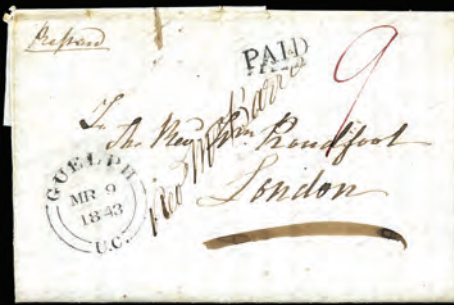 Prepaid
PAID
9
To
The Revd Wm Proudfoot
London
GUELPH
MR 9
1843
U.C.